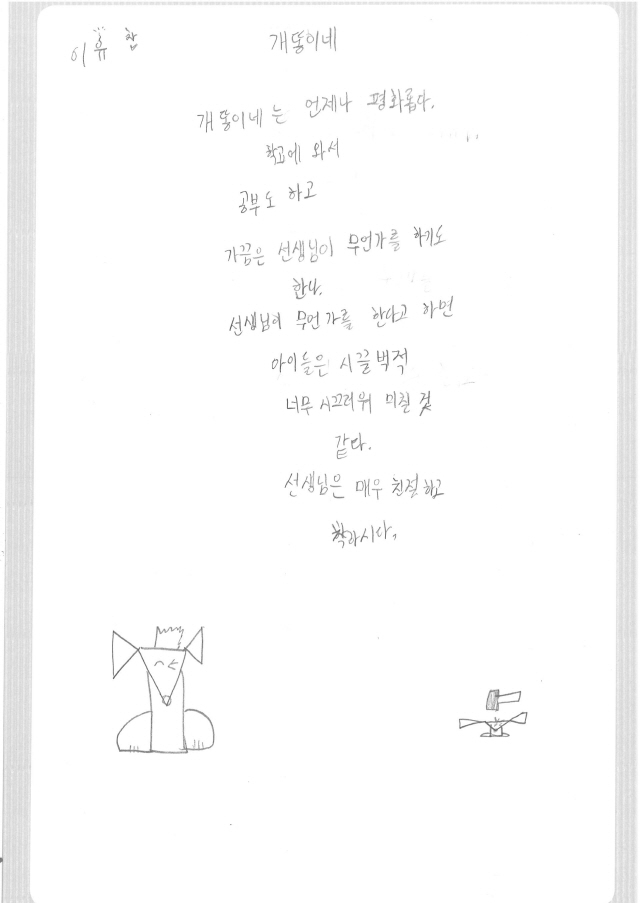 이흉찹
개똥이네
개똥이네는 언제나 평화롭다.
학교에 와서
공부도 하고
가끔은 선생님이 무언가를 하기도
한다.
선생님이 무언가를 한다고 하면
아이들은 시끌벅적
너무 시끄러워 미칠 것
같다.
선생님은 매우 친절하고
착하시다.